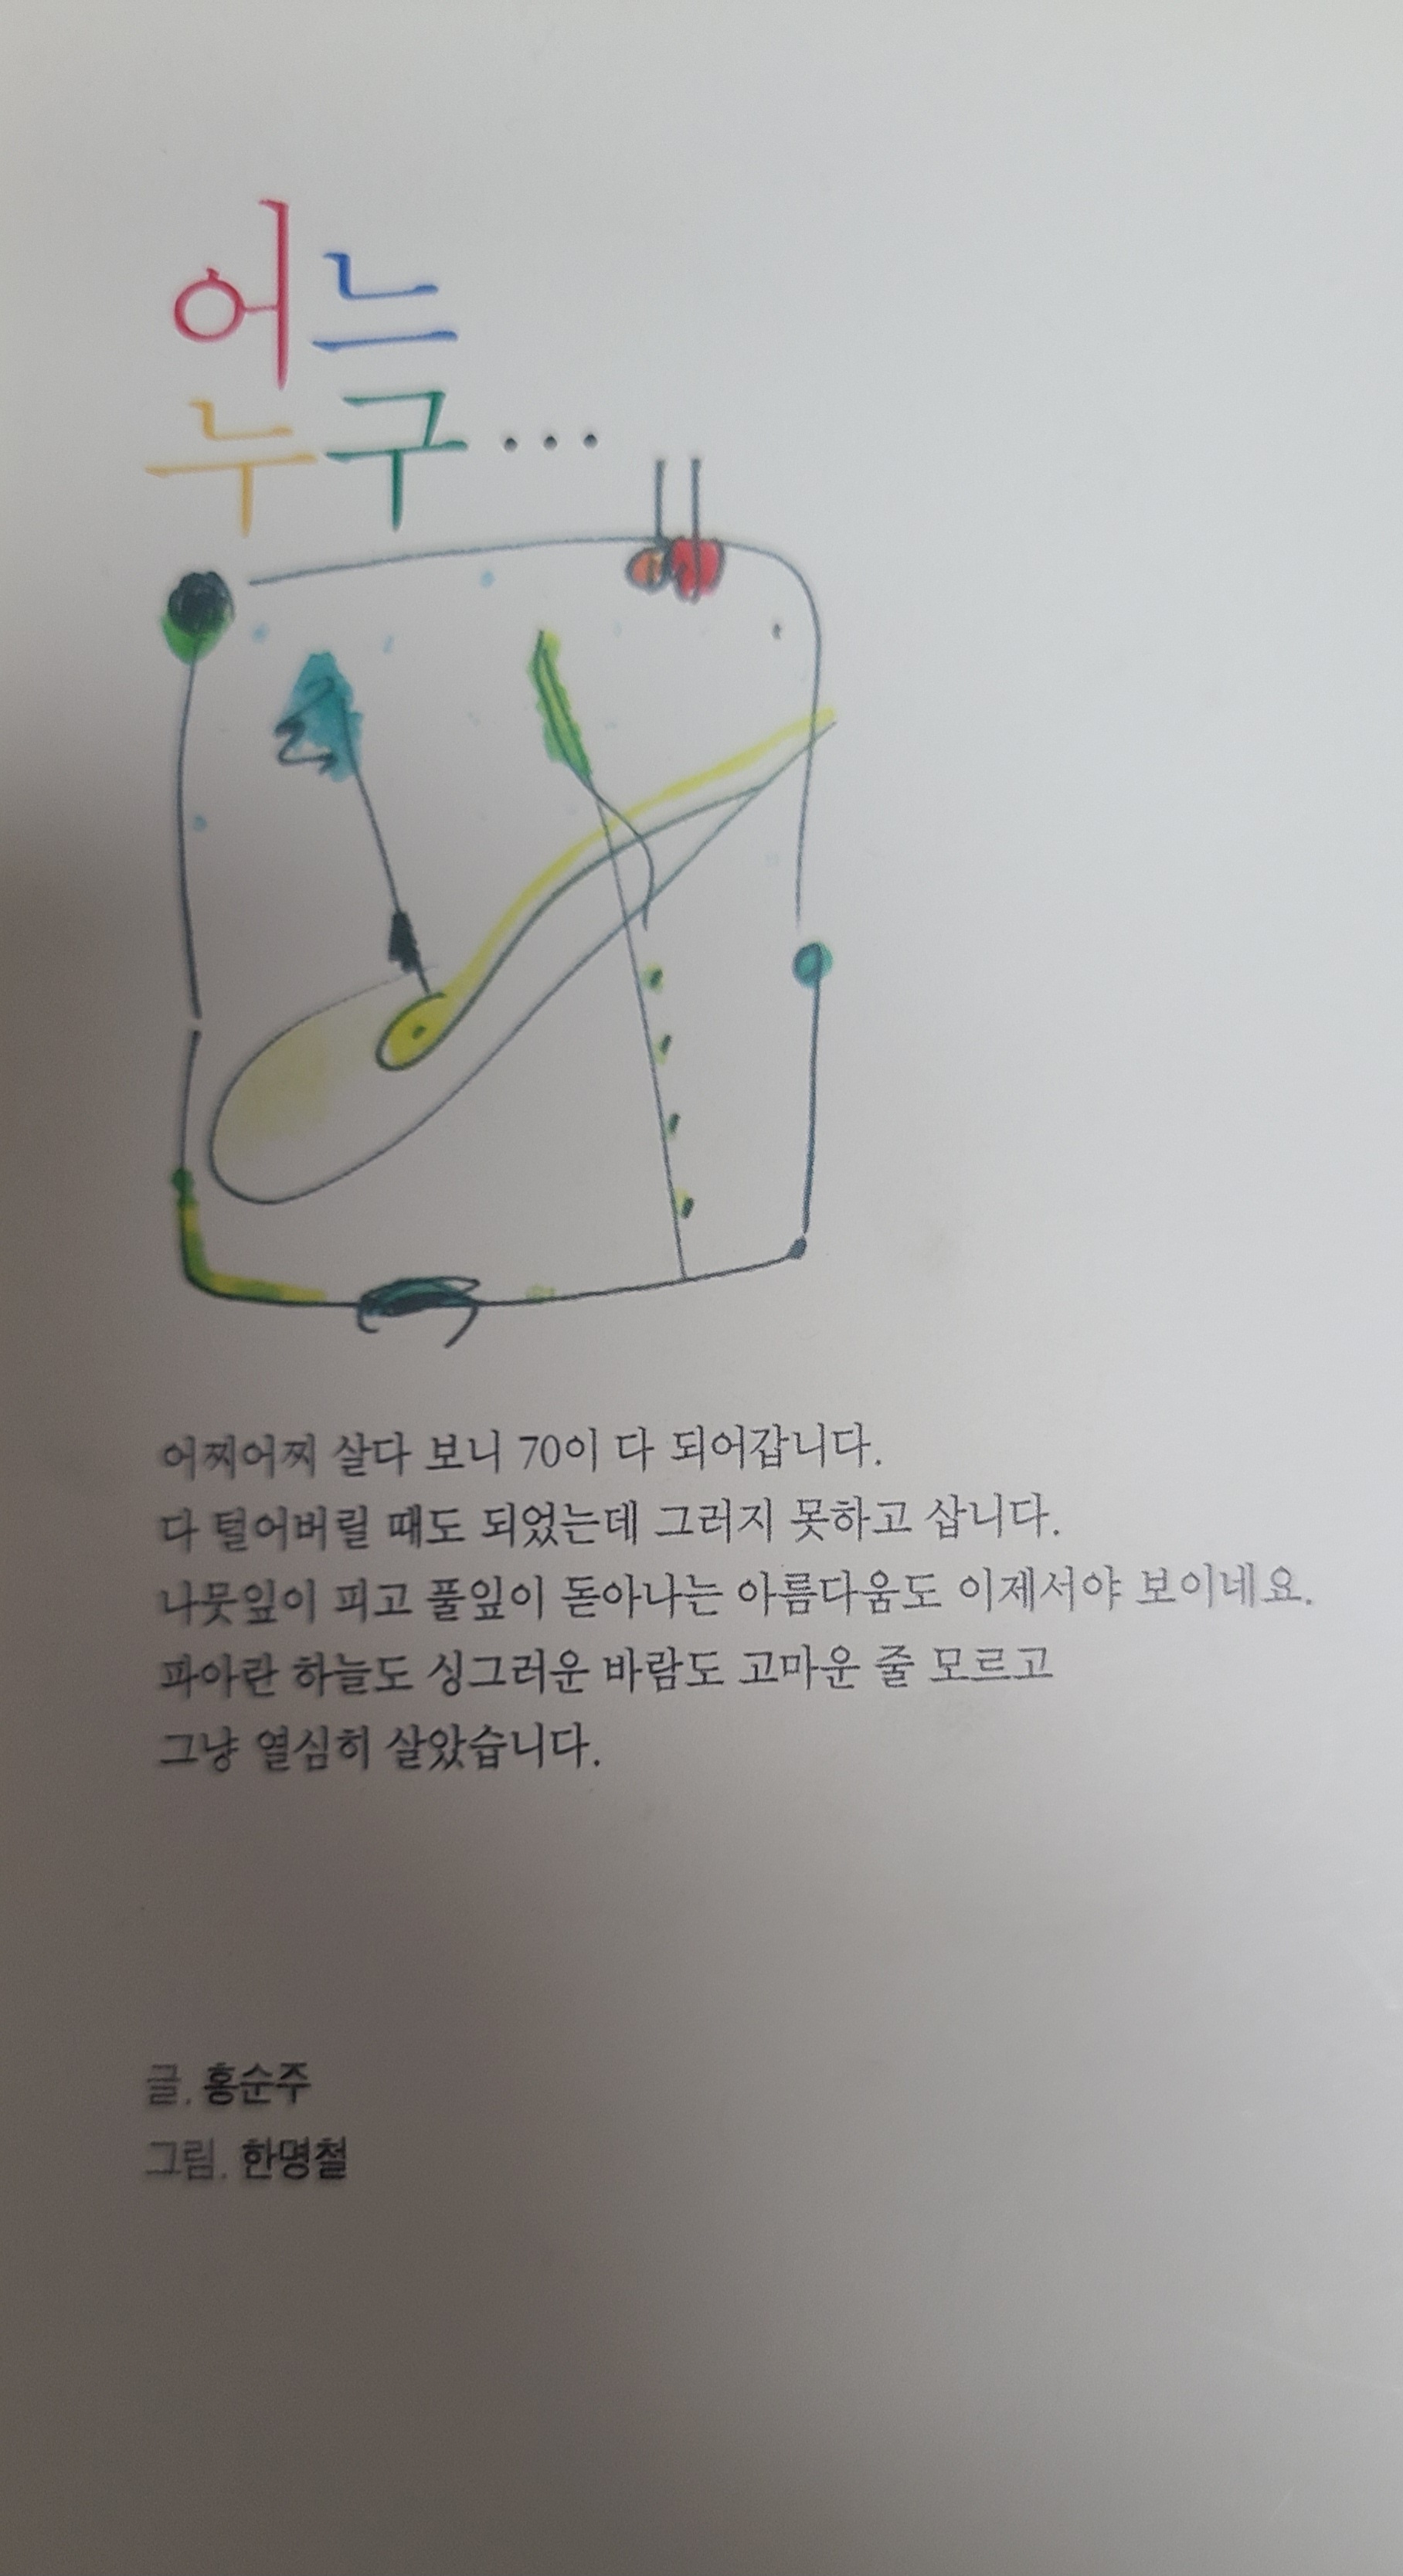 어느
누구...
어찌어찌 살다 보니 70이 다 되어갑니다.
다 털어버릴 때도 되었는데 그러지 못하고 삽니다.
나뭇잎이 피고 풀잎이 돋아나는 아름다움도 이제서야 보이네요.
파아란 하늘도 싱그러운 바람도 고마운 줄 모르고
그냥 열심히 살았습니다.
글. 홍순주
그림. 한명철